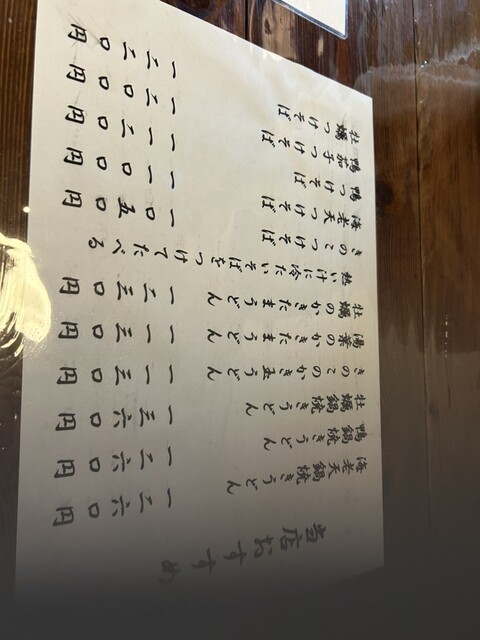 当店おすすめ
海老天鍋焼きうどん 一二六〇円
鴨鍋焼きうどん 一二六〇円
牡蠣鍋焼きうどん 一三六〇円
きのこのかき玉うどん 一一三〇円
湯葉のかきたまうどん 一一三〇円
牡蠣のかきたまうどん 一二三〇円
熱い汁に冷たいそばをつけてたべる
きのこつけそば 一〇五〇円
海老天つけそば 一一〇〇円
鴨つけそば 一一二〇円
鴨茄子つけそば 一二〇〇円
牡蠣つけそば 一二二〇円